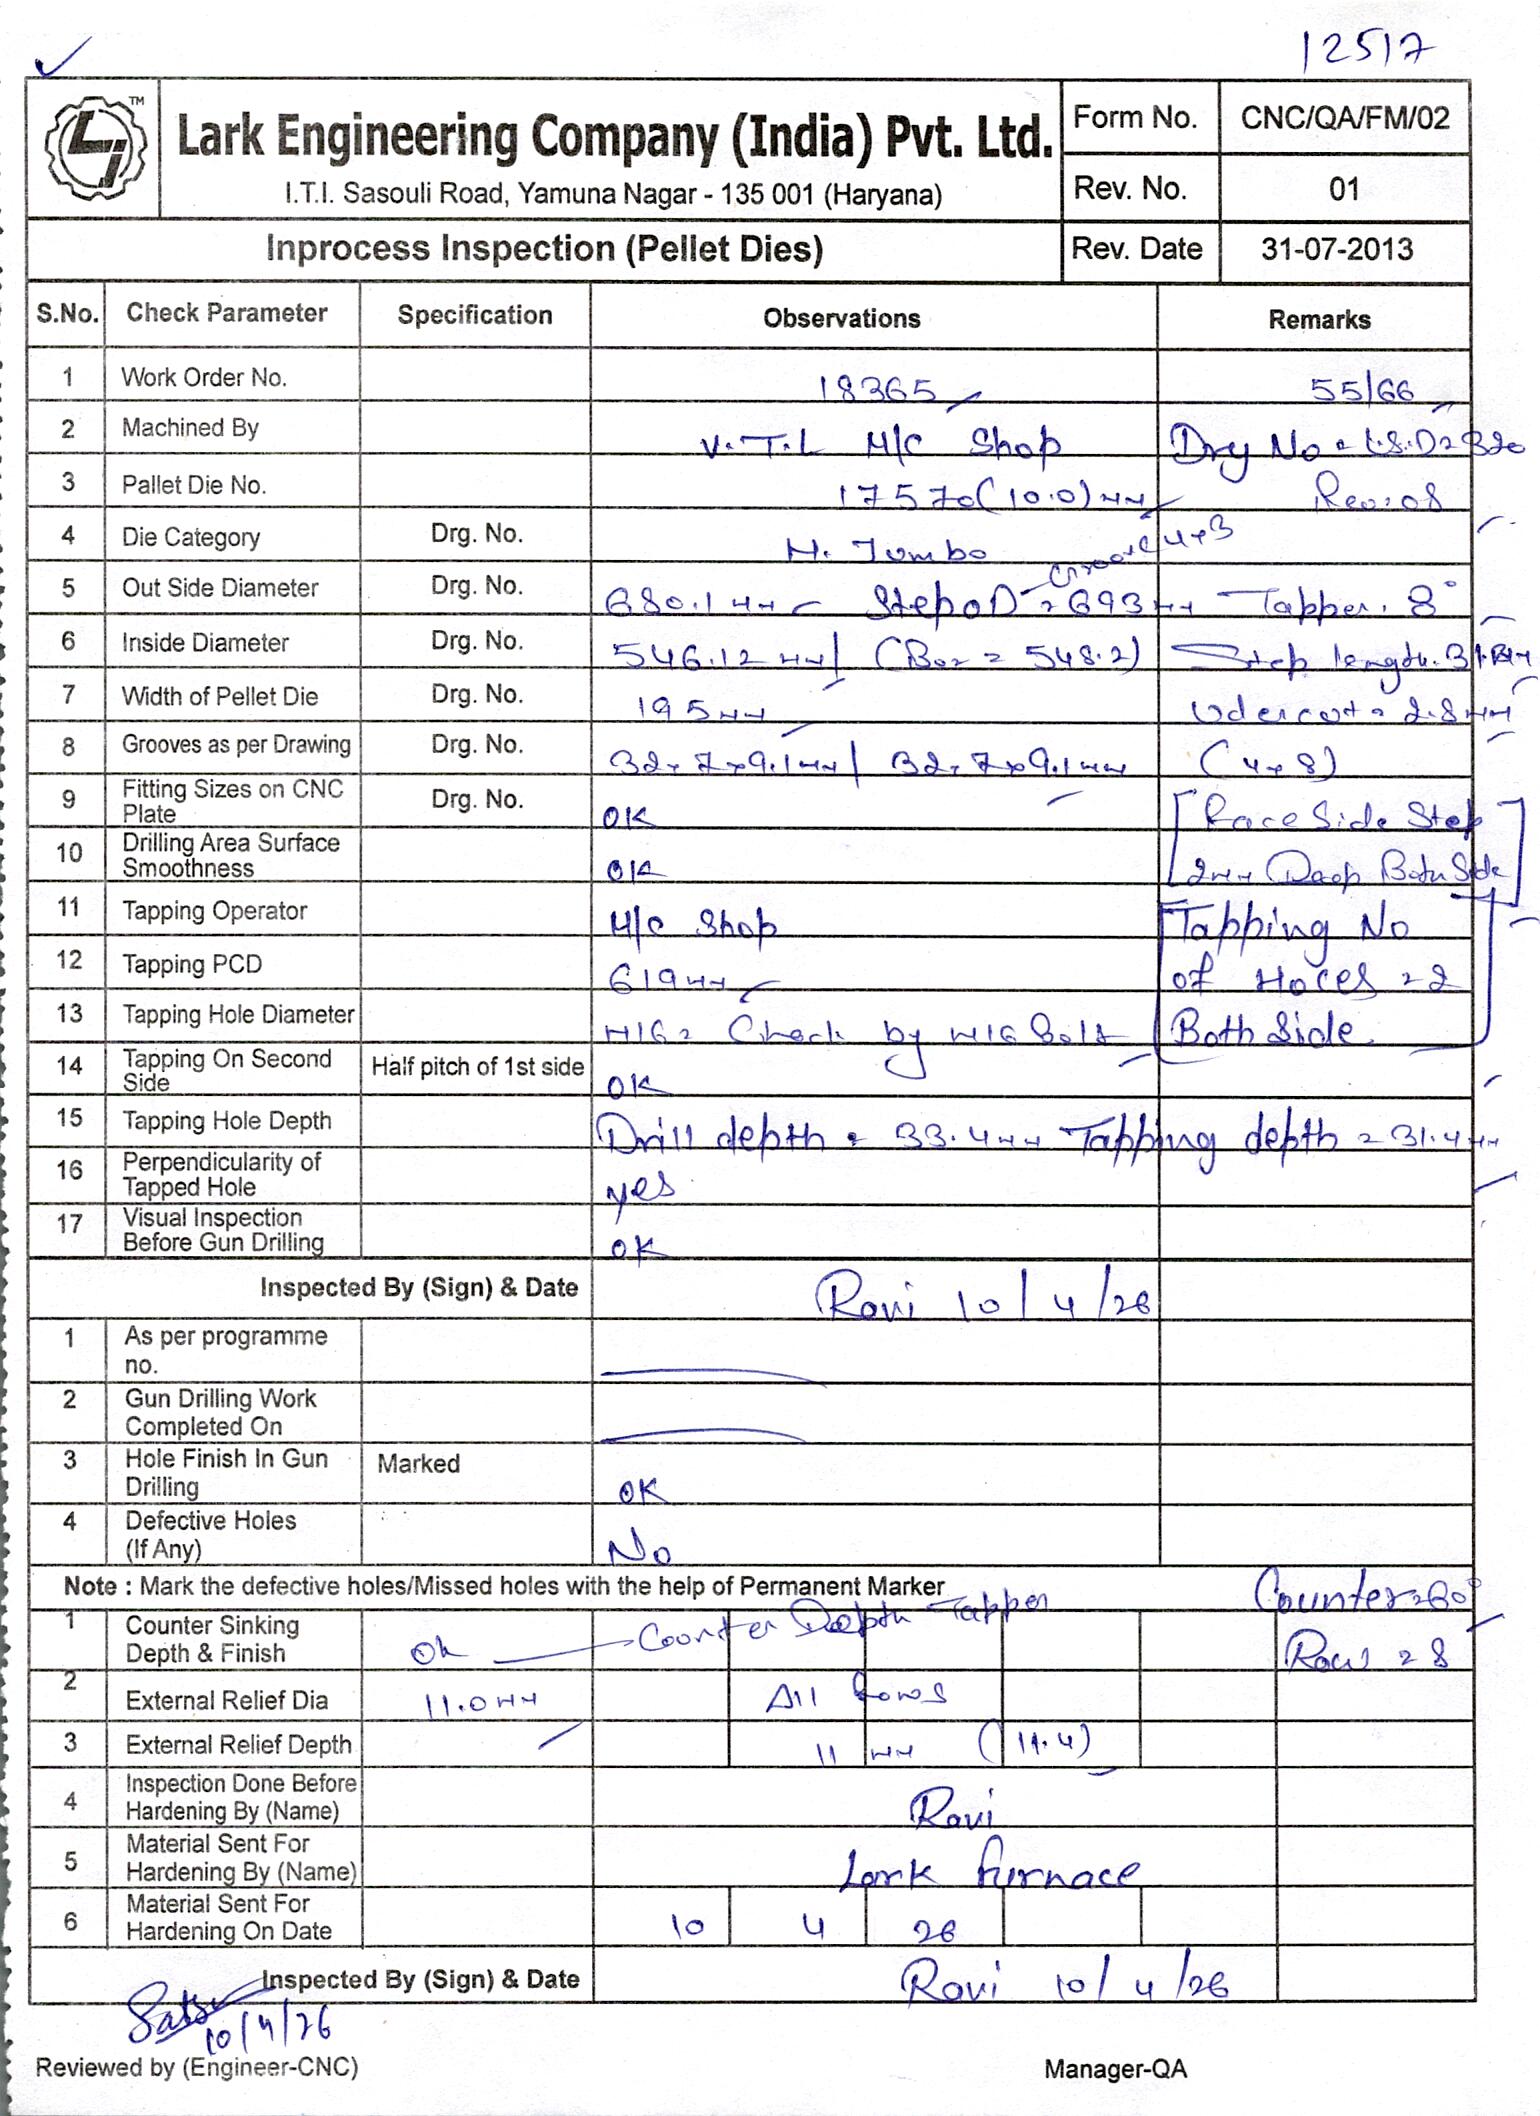 12517
TM
Lark Engineering Company (India) Pvt. Ltd.
I.T.I. Sasouli Road, Yamuna Nagar - 135 001 (Haryana)
Form No. CNC/QA/FM/02
Rev. No. 01
Inprocess Inspection (Pellet Dies) Rev. Date 31-07-2013
S.No. Check Parameter Specification Observations Remarks
1 Work Order No. 18365 55/66
2 Machined By V.T.L M/C Shop Dry No = 320
3 Pallet Die No. 17570(10.0)mm Rev:08
4 Die Category Drg. No. H. Jumbo Groove 4x3
5 Out Side Diameter Drg. No. 680.1mm Step OD = 693mm Tapper. 8°
6 Inside Diameter Drg. No. 546.12mm (Bor = 548.2) Step length.
7 Width of Pellet Die Drg. No. 195mm Udercut = 2.8mm
8 Grooves as per Drawing Drg. No. 32x7x9.1mm / 32x7x9.1mm (4x8)
9 Fitting Sizes on CNC Plate Drg. No. OK [Face Side Step
10 Drilling Area Surface Smoothness OK 2mm Deep Both Side]
11 Tapping Operator M/C Shop Tapping No
12 Tapping PCD 619mm of Holes = 2
13 Tapping Hole Diameter M16 = Check by M16 Bolt Both Side.
14 Tapping On Second Side Half pitch of 1st side OK
15 Tapping Hole Depth Drill depth = 33.4mm Tapping depth = 31.4mm
16 Perpendicularity of Tapped Hole yes
17 Visual Inspection Before Gun Drilling OK
Inspected By (Sign) & Date Ravi 10/4/26
1 As per programme no.
2 Gun Drilling Work Completed On
3 Hole Finish In Gun Drilling Marked OK
4 Defective Holes (If Any) No
Note : Mark the defective holes/Missed holes with the help of Permanent Marker Counter = 60°
1 Counter Sinking Depth & Finish Ok Counter Depth Tapper Row = 8
2 External Relief Dia 11.0mm All Rows
3 External Relief Depth 11 mm (11.4)
4 Inspection Done Before Hardening By (Name) Ravi
5 Material Sent For Hardening By (Name) Lark furnace
6 Material Sent For Hardening On Date 10 4 26
Inspected By (Sign) & Date Ravi 10/4/26
10/4/26
Reviewed by (Engineer-CNC) Manager-QA